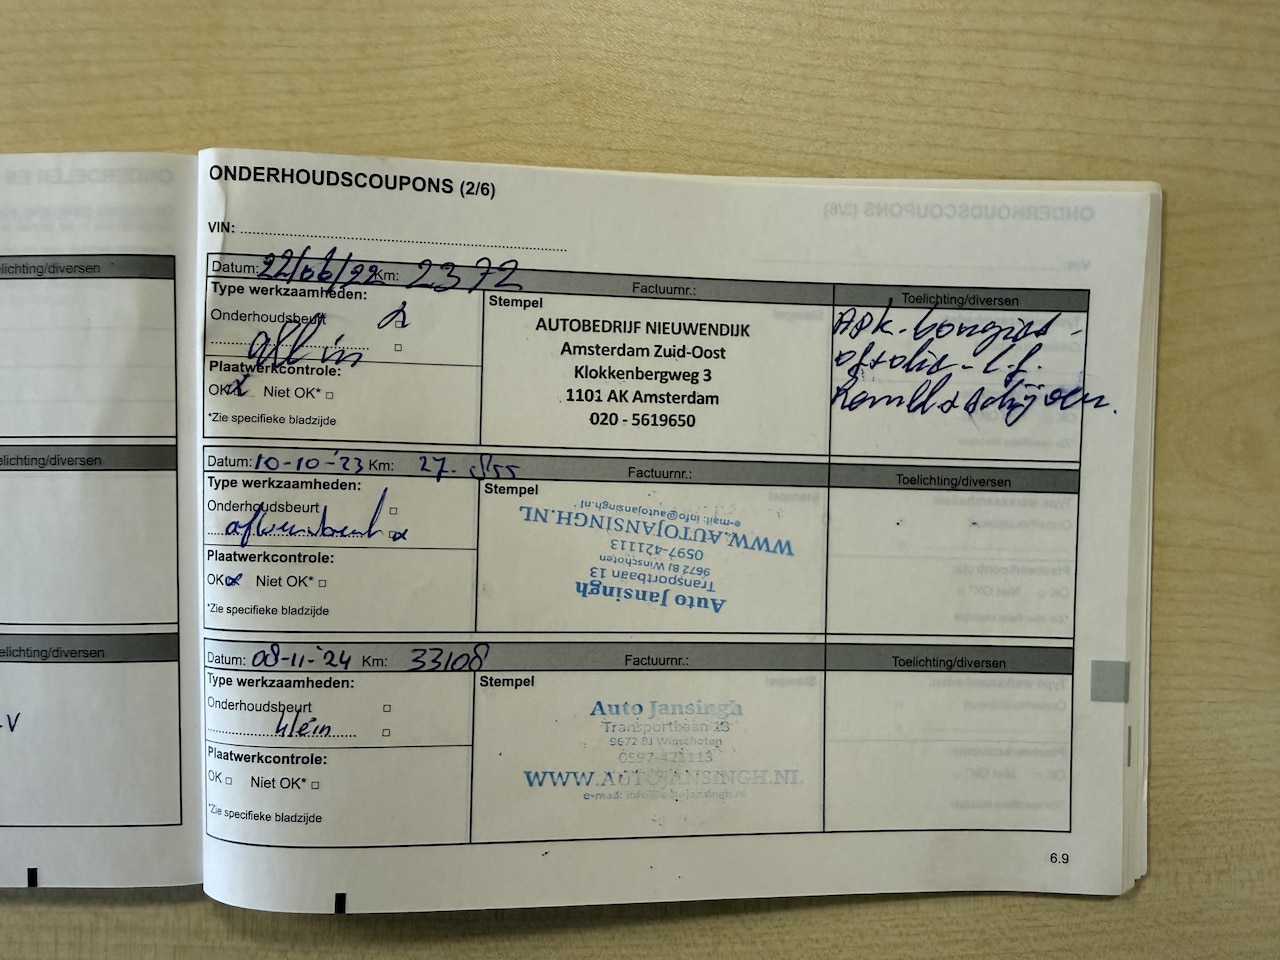 ONDERHOUDSCOUPONS (2/6)
VIN:
Datum: 22/06/22 Km: 2372 Factuurnr.:
Toelichting/diversen
Type werkzaamheden:
Onderhoudsbeurt
all in
Plaatwerkcontrole:
OK Niet OK*
*Zie specifieke bladzijde
Stempel
AUTOBEDRIJF NIEUWENDIJK
Amsterdam Zuid-Oost
Klokkenbergweg 3
1101 AK Amsterdam
020 - 5619650
Apk - bougies -
Datum: 10-10-'23 Km: Factuurnr.:
Toelichting/diversen
Type werkzaamheden:
Onderhoudsbeurt
Plaatwerkcontrole:
OK Niet OK*
*Zie specifieke bladzijde
Stempel
Auto Jansingh
Transportbaan 13
9672 BJ Winschoten
0597-421113
WWW.AUTOJANSINGH.NL
e-mail: info@autojansingh.nl
Datum: 08-11-'24 Km: 33108 Factuurnr.:
Toelichting/diversen
Type werkzaamheden:
Onderhoudsbeurt
klein
Plaatwerkcontrole:
OK Niet OK*
*Zie specifieke bladzijde
Stempel
Auto Jansingh
Transportbaan 13
9672 BJ Winschoten
0597-421113
WWW.AUTOJANSINGH.NL
e-mail: info@autojansingh.nl
6.9